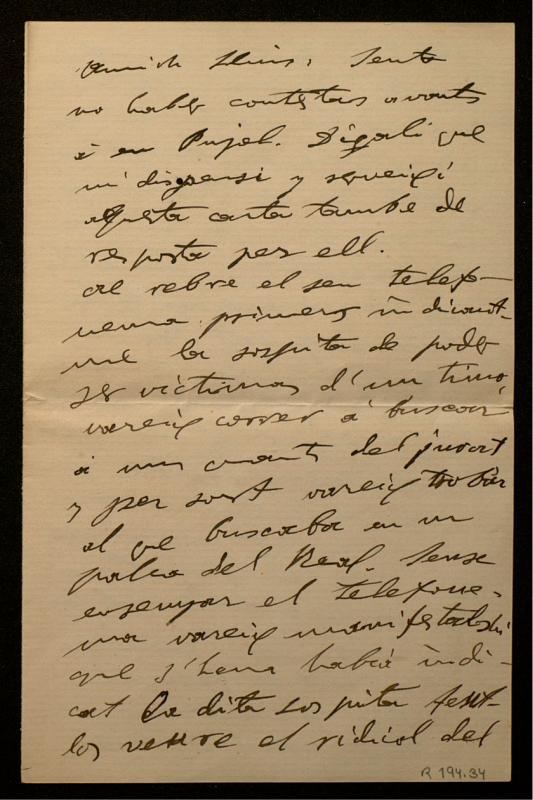 Amich Lluis: Sento
no haber contestat avants
á en Pujol. Digali que
m' dispensi y serveixi
aquesta carta tambe de
resposta per ell.
Al rebre el seu telefo-
nema primer indicant-
me la sospita de poder
ser victimas d'un timo,
vareig correr á buscar
á uns cuants del jurat
y per sort vareig trobar
al que buscaba en un
palco del Real. Sense
ensenyar el telefone-
ma vareig manifestalshi
que s'hens habia indi-
cat la dita sospita fent-
los veure el ridicol del
R 194.34